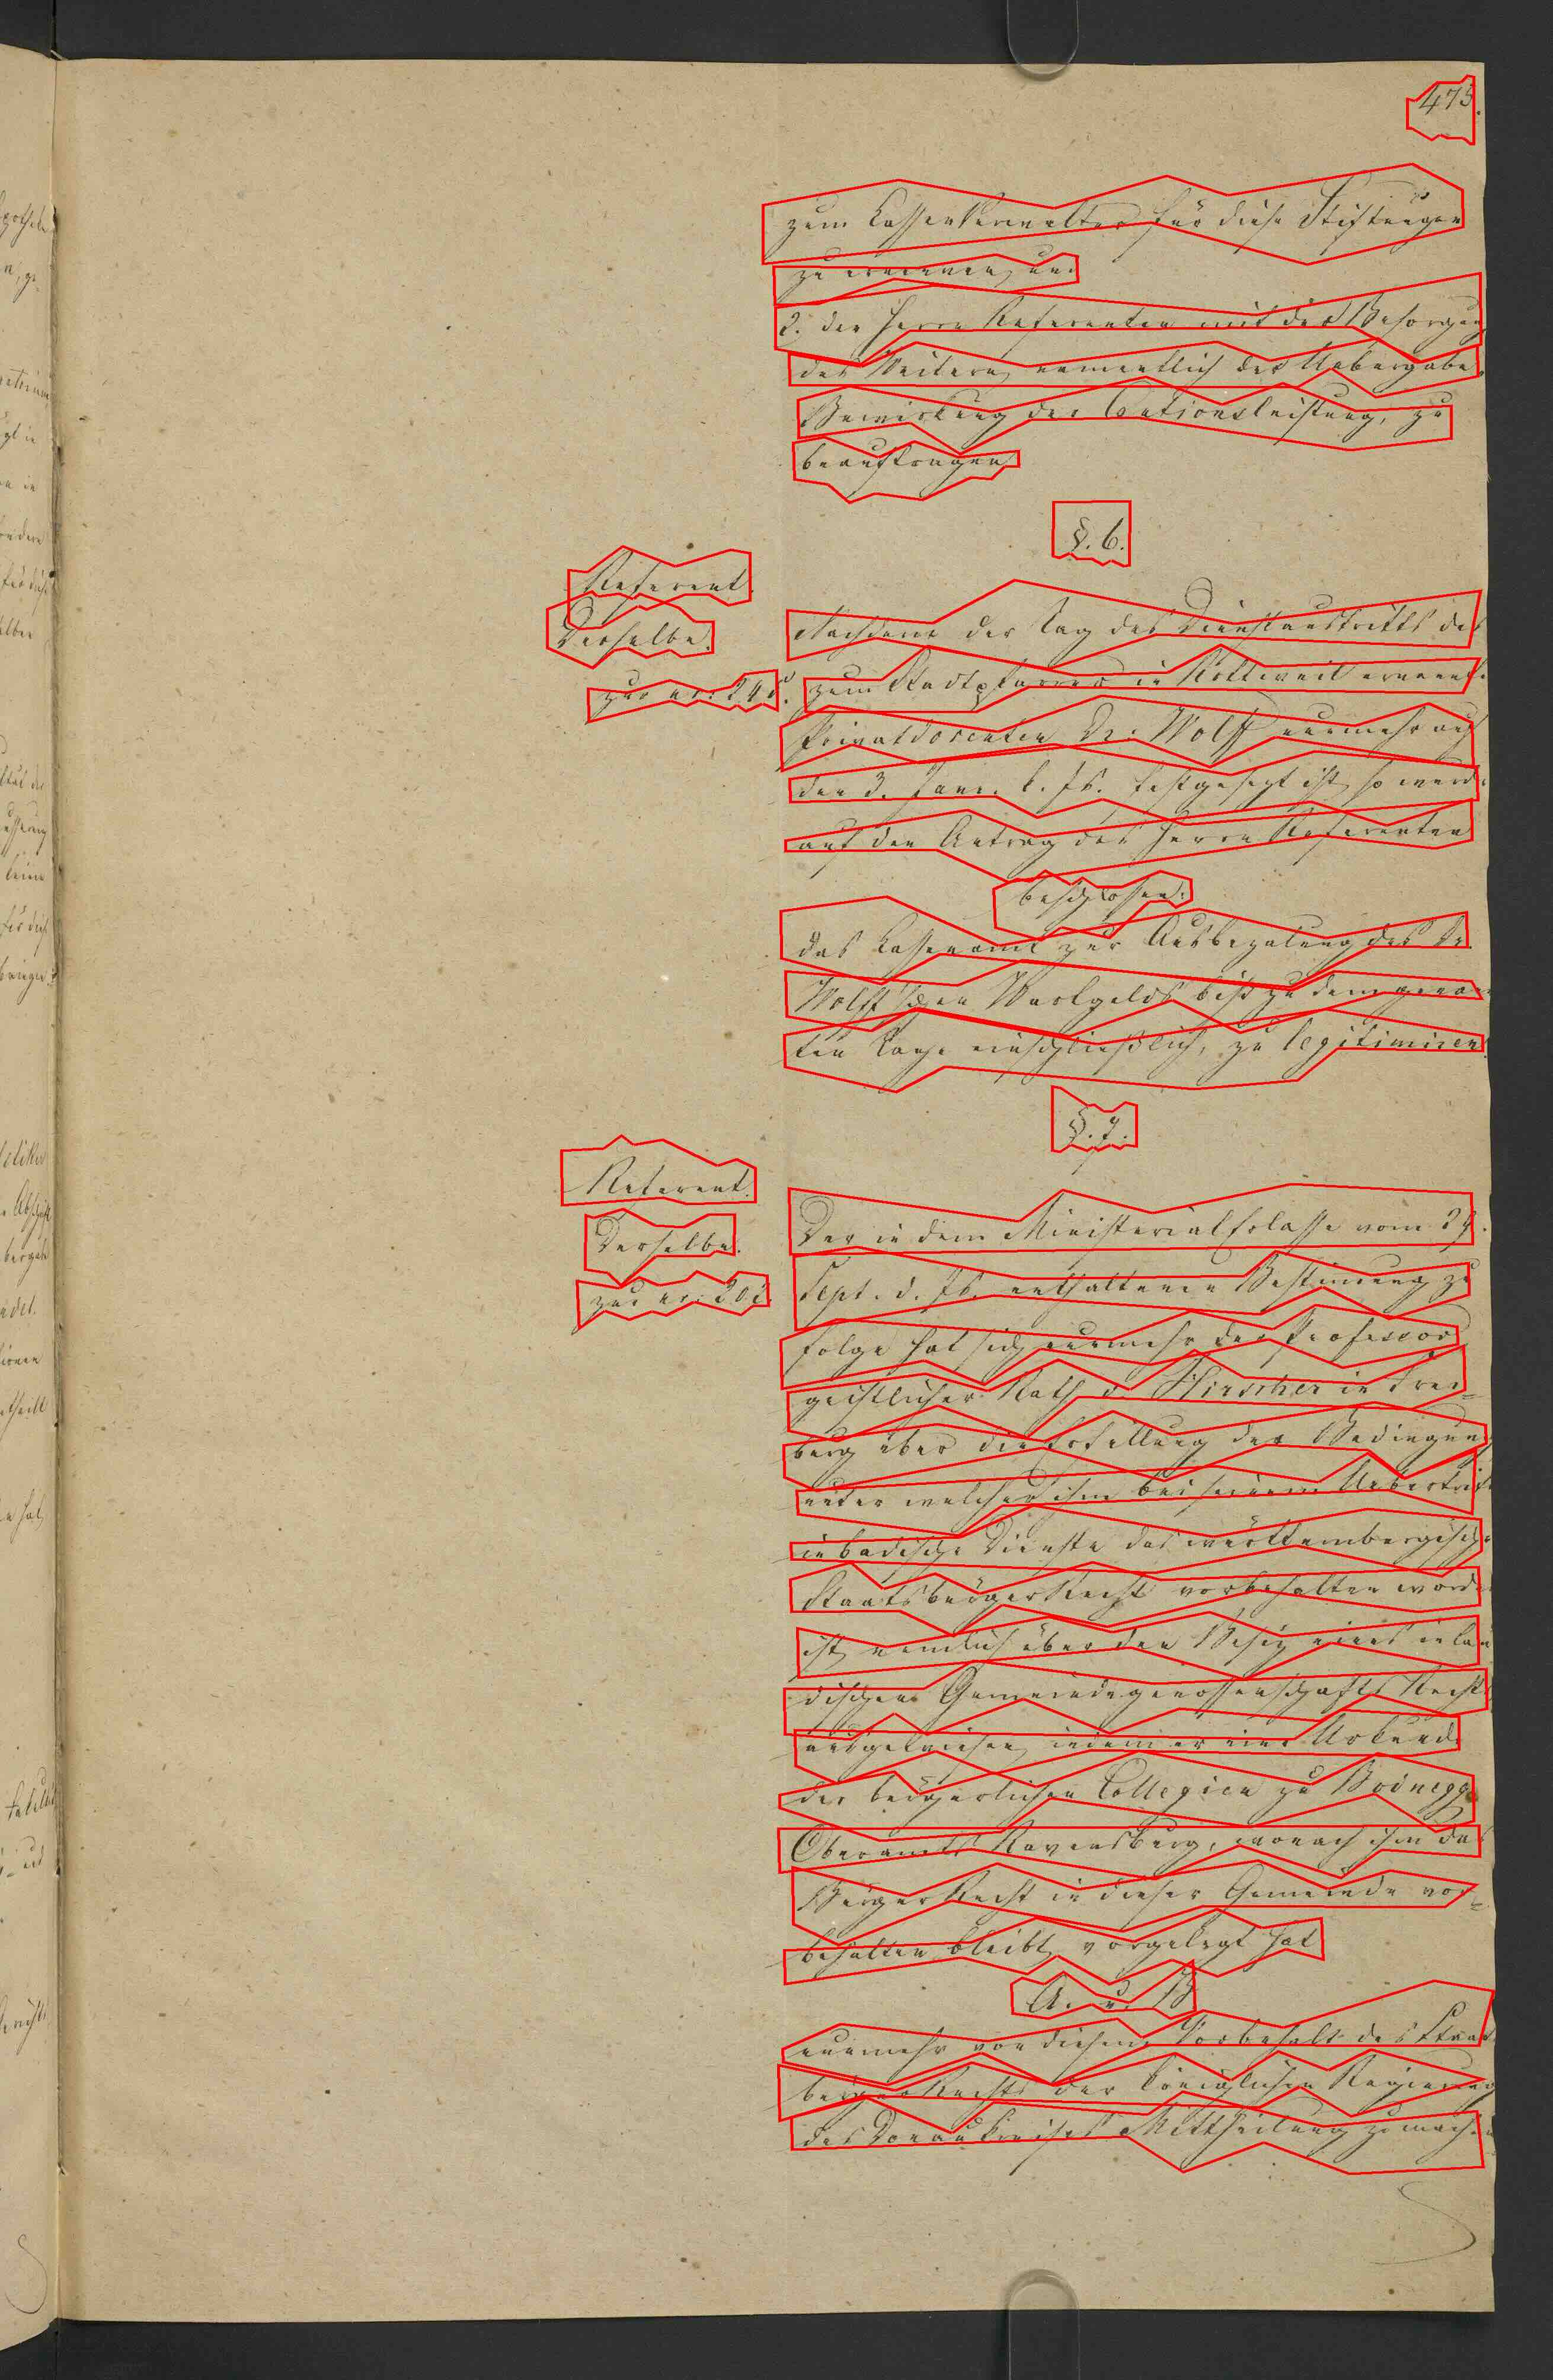 475.
zum Cassenverwalter für diese Stiftungen
zu ernennen, und
2. den Herrn Referenten mit der Besorgung
des Weitern, namentlich der Uebergabe,
Bewirkung der Cautionsleistung, zu
beauftragen.
§. 6.
Referent
Derselbe.
zur nr. 245.
Nachdem der Tag des Dienstaustritts des
zum Stadtpfarrer in Rottweil ernannt.
Privatdocenten Dr. Wolff nunmehr auf
den 3. Janr. k. Js. festgesezt ist, so wurde
auf den Antrag des Herrn Referenten
beschlossen:
das Cassenamt zur Ausbezalung des Dr.
Wolff'schen Wartgelds bis zu dem genan
ten Tage einschließlich, zu legitimiren.
§. 7.
Referent.
Derselbe.
zur nr. 202.
Der in dem Ministerialerlasse vom 29.
Sept. d. Js. enthaltenen Bestimmung zu
folge hat sich nunmehr der Professor
geistlicher Rath v. Hirscher in Frei-
burg über die Erfüllung der Bedingung
unter welcher ihm bei seinem Uebertritt
in badische Dienste das württembergische
StaatsbürgerRecht vorbehalten worden
ist, nemlich über den Besiz eines inlän
dischen GemeindegenossenschaftsRechts
ausgewiesen, indem er eine Urkunde
der bürgerlichen Collegien zu Bodnegg
Oberamts Ravensburg, wonach ihm das
BürgerRecht in dieser Gemeinde vor-
behalten bleibt, vorgelegt hat
A. u. B
nunmehr von diesem Vorbehalt des Staats
bürgerRechts der königlichen Regierung
des Donaukreises Mittheilung zu machen